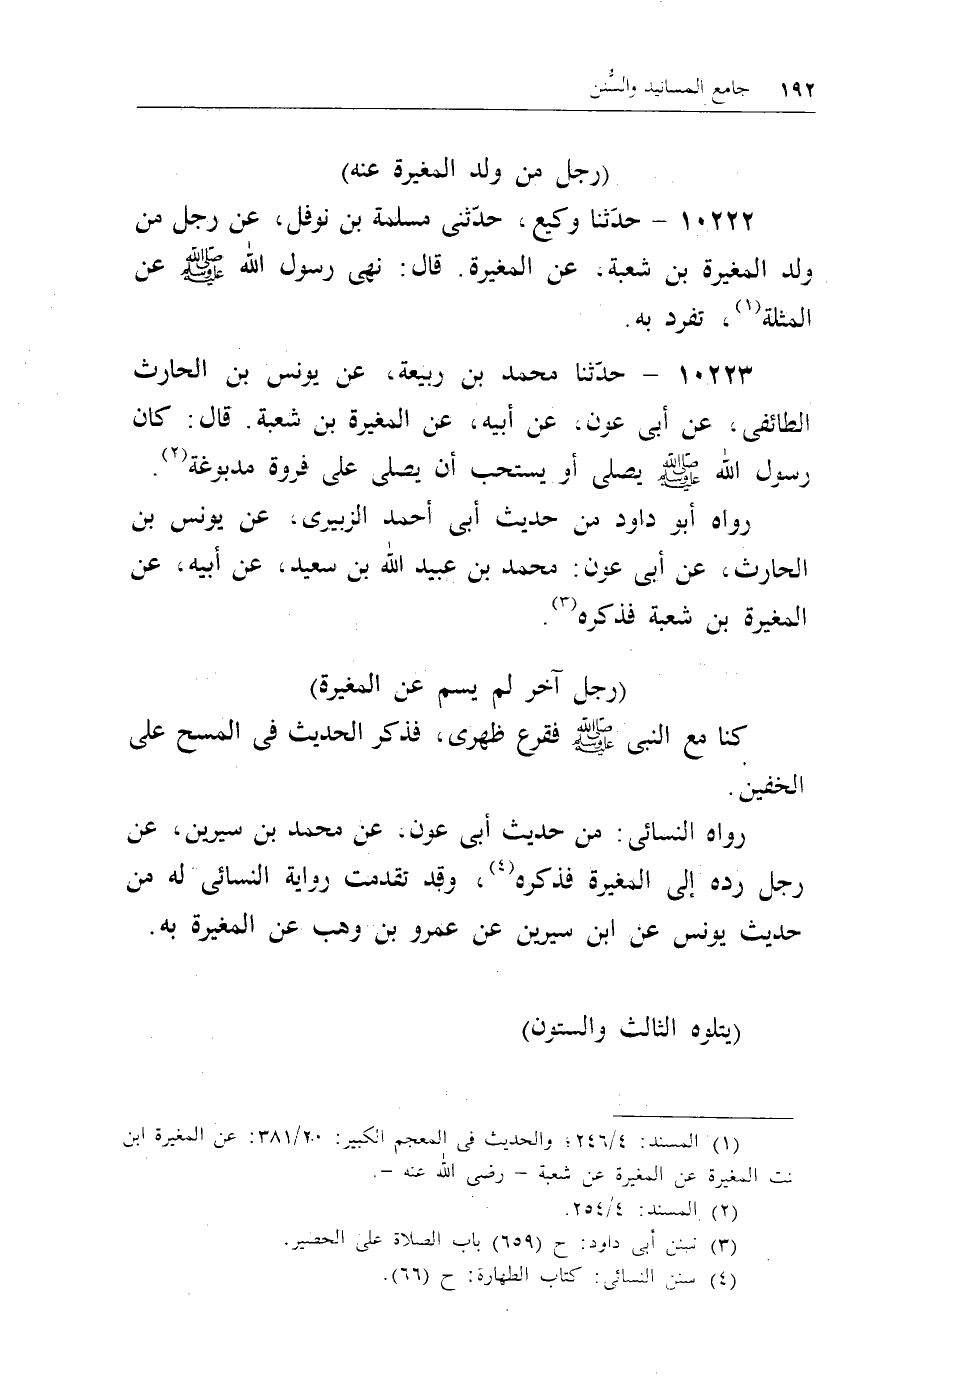 ١٩٢ جامع المسانيد والسُّنن
(رجل من ولد المغيرة عنه)
١٠٢٢٢ – حدّثنا وكيع، حدّثنى مسلمة بن نوفل، عن رجل من
ولد المغيرة بن شعبة، عن المغيرة. قال: نهى رسول الله ﷺ عن
المثلة(١)، تفرد به.
١٠٢٢٣ – حدّثنا محمد بن ربيعة، عن يونس بن الحارث
الطائفى، عن أبى عون، عن أبيه، عن المغيرة بن شعبة. قال: كان
رسول الله ﷺ يصلى أو يستحب أن يصلى على فروة مدبوغة(٢).
رواه أبو داود من حديث أبى أحمد الزبيرى، عن يونس بن
الحارث، عن أبى عون: محمد بن عبيد الله بن سعيد، عن أبيه، عن
المغيرة بن شعبة فذكره(٣).
(رجل آخر لم يسم عن المغيرة)
كنا مع النبى ﷺ فقرع ظهرى، فذكر الحديث فى المسح على
الخفين.
رواه النسائى: من حديث أبى عون، عن محمد بن سيرين، عن
رجل رده إلى المغيرة فذكره(٤)، وقد تقدمت رواية النسائى له من
حديث يونس عن ابن سيرين عن عمرو بن وهب عن المغيرة به.
(يتلوه الثالث والستون)
(١) المسند: ٢٤٦/٤؛ والحديث فى المعجم الكبير: ٣٨١/٢٠: عن المغيرة ابن
نت المغيرة عن المغيرة عن شعبة – رضى الله عنه –.
(٢) المسند: ٢٥٤/٤.
(٣) سنن أبى داود: ح (٦٥٩) باب الصلاة على الحصير.
(٤) سنن النسائى: كتاب الطهارة: ح (٦٦).